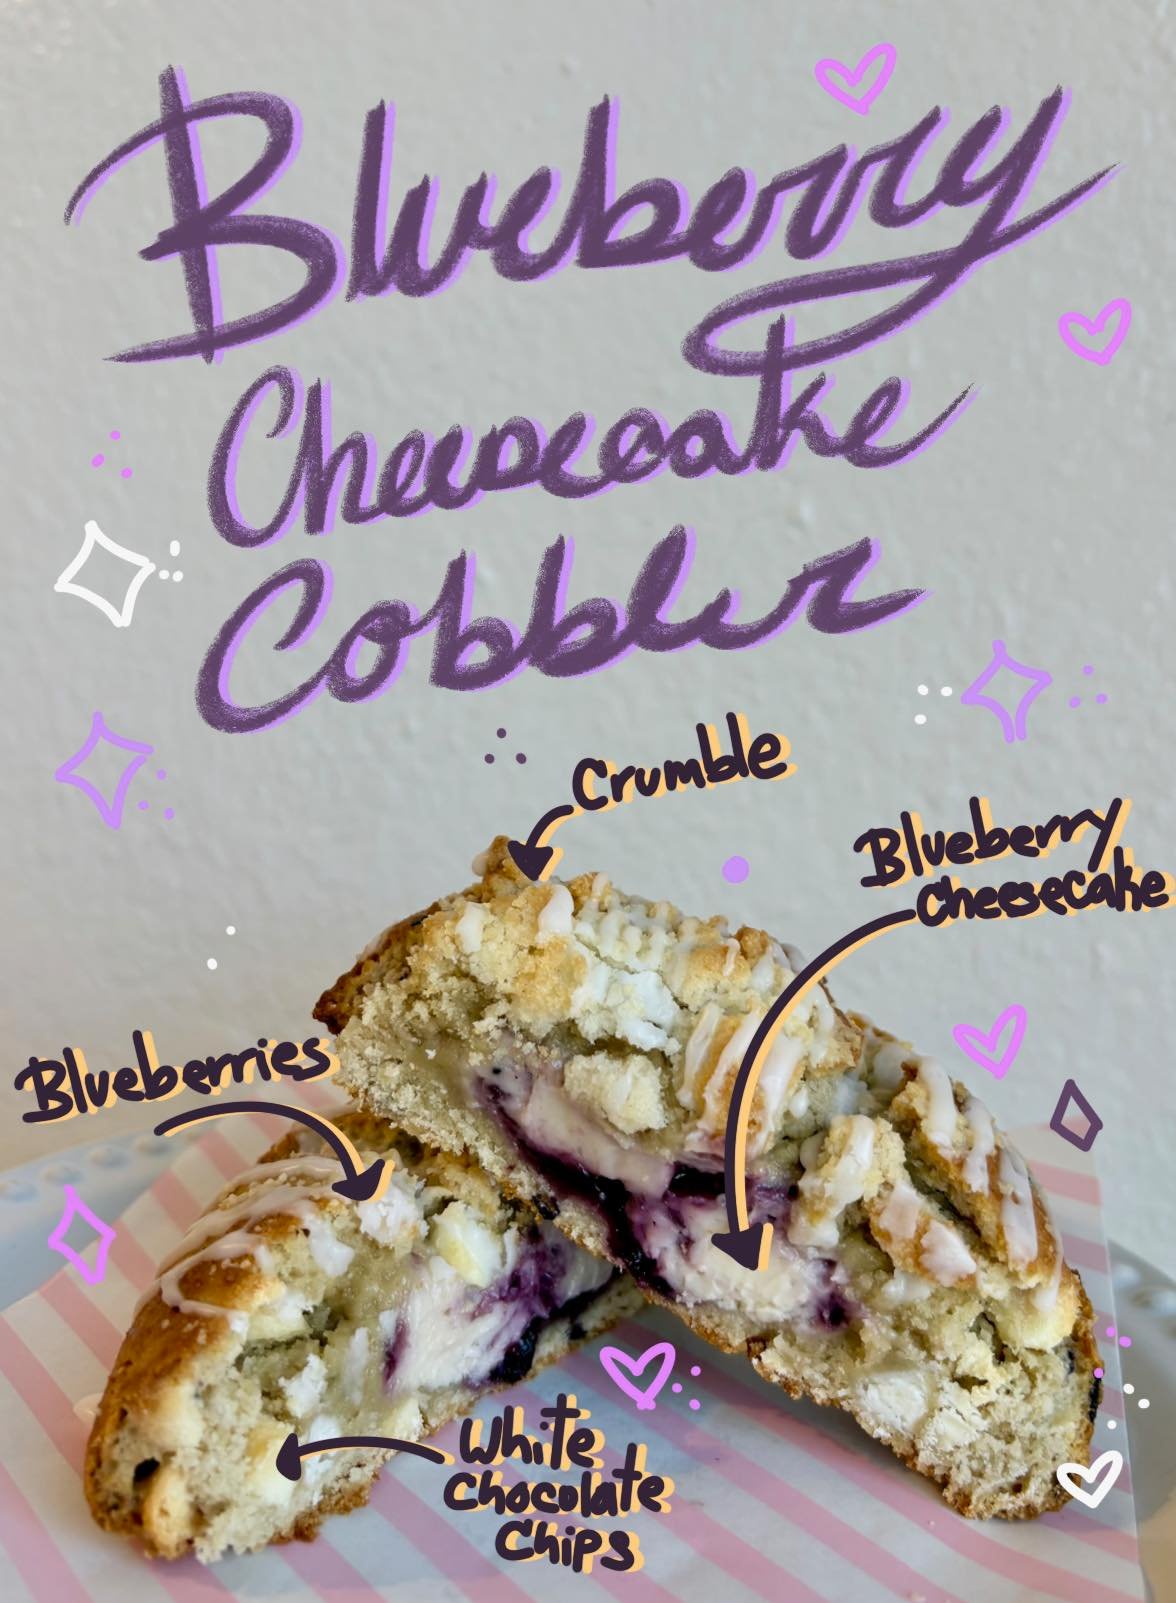 Blueberry
Cheesecake
Cobbler
Crumble
Blueberry
Cheesecake
Blueberries
White
Chocolate
Chips